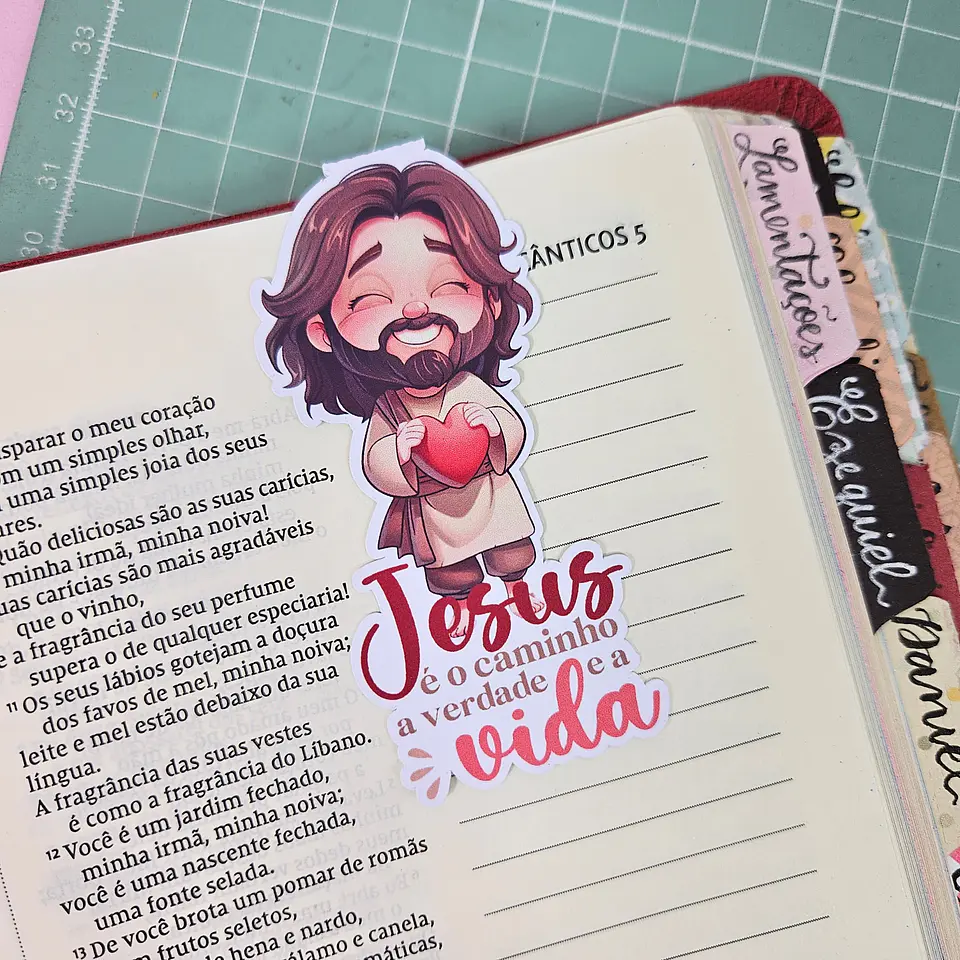 33
32
31
30
CÂNTICOS 5
disparar o meu coração
com um simples olhar,
uma simples joia dos seus
Quão deliciosas são as suas carícias,
minha irmã, minha noiva!
Suas carícias são mais agradáveis
que o vinho,
e a fragrância do seu perfume
supera o de qualquer especiaria!
11 Os seus lábios gotejam a doçura
dos favos de mel, minha noiva;
leite e mel estão debaixo da sua
língua.
A fragrância das suas vestes
é como a fragrância do Líbano.
12 Você é um jardim fechado,
minha irmã, minha noiva;
você é uma nascente fechada,
uma fonte selada.
13 De você brota um pomar de romãs
frutos seletos,
de hena e nardo,
cálamo e canela,
Jesus
é o caminho
a verdade e a
vida
Lamentações
Ezequiel
Daniel